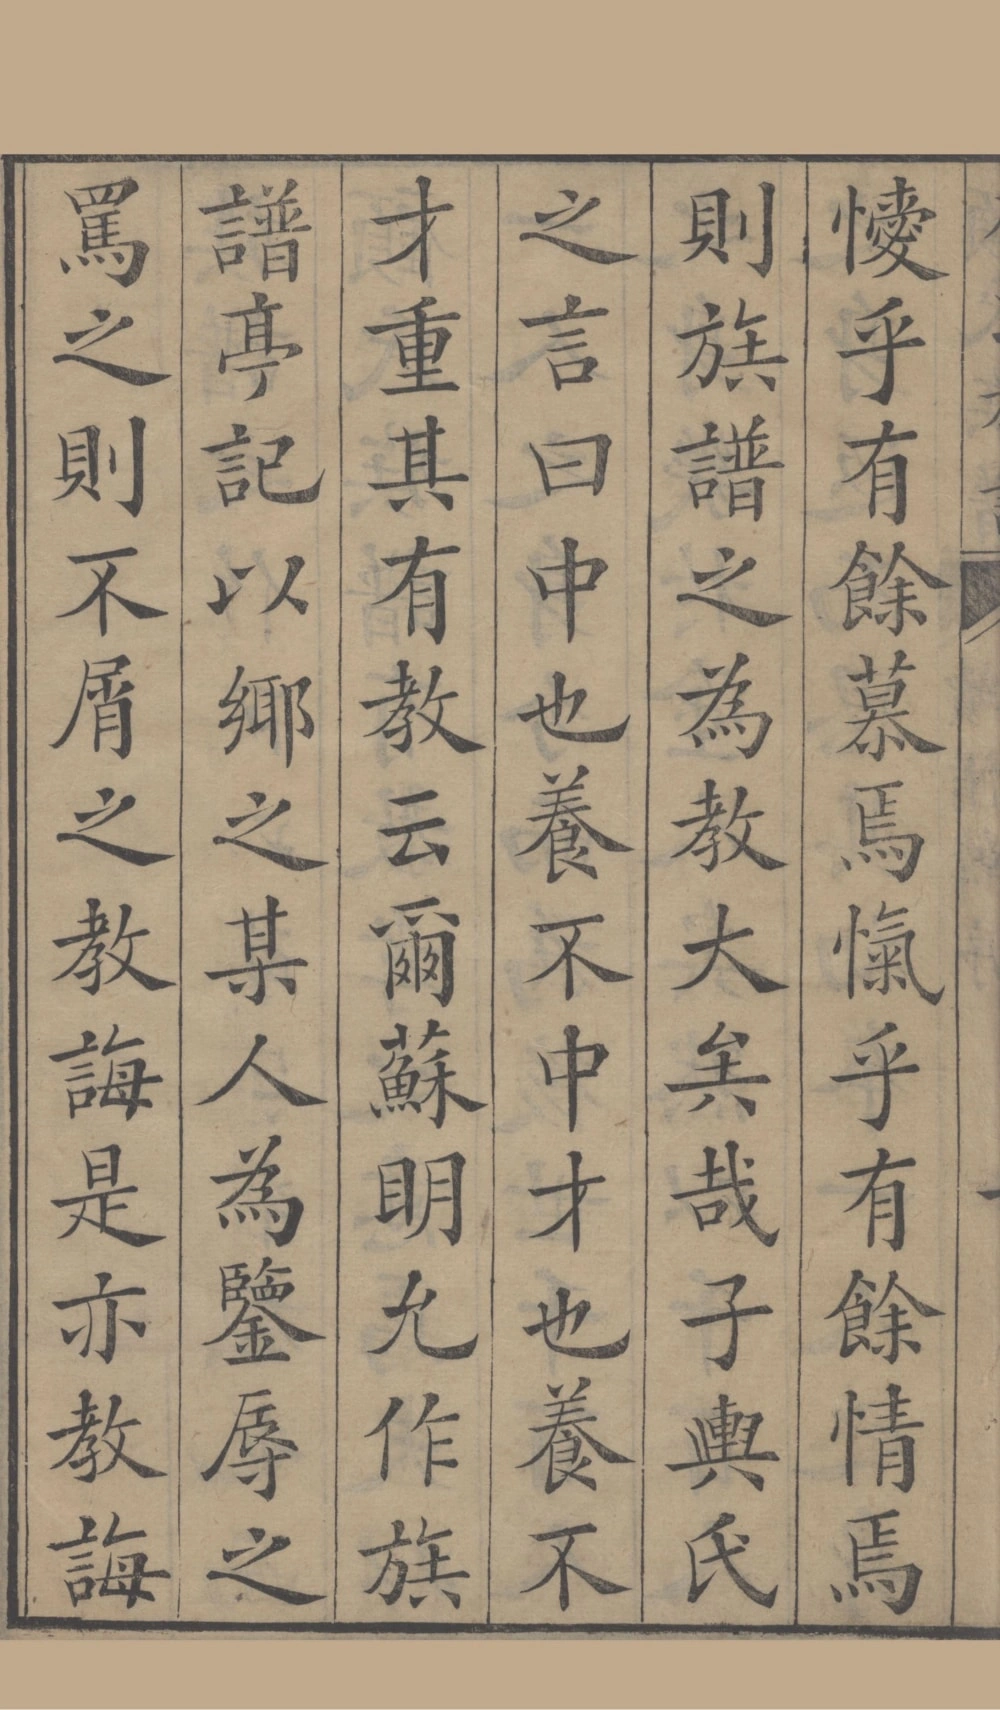 懓乎有餘慕焉愾乎有餘情焉
則族譜之為教大矣哉子輿氏
之言曰中也養不中才也養不
才重其有教云爾蘇明允作族
譜亭記以鄉之某人為鑒辱之
罵之則不屑之教誨是亦教誨